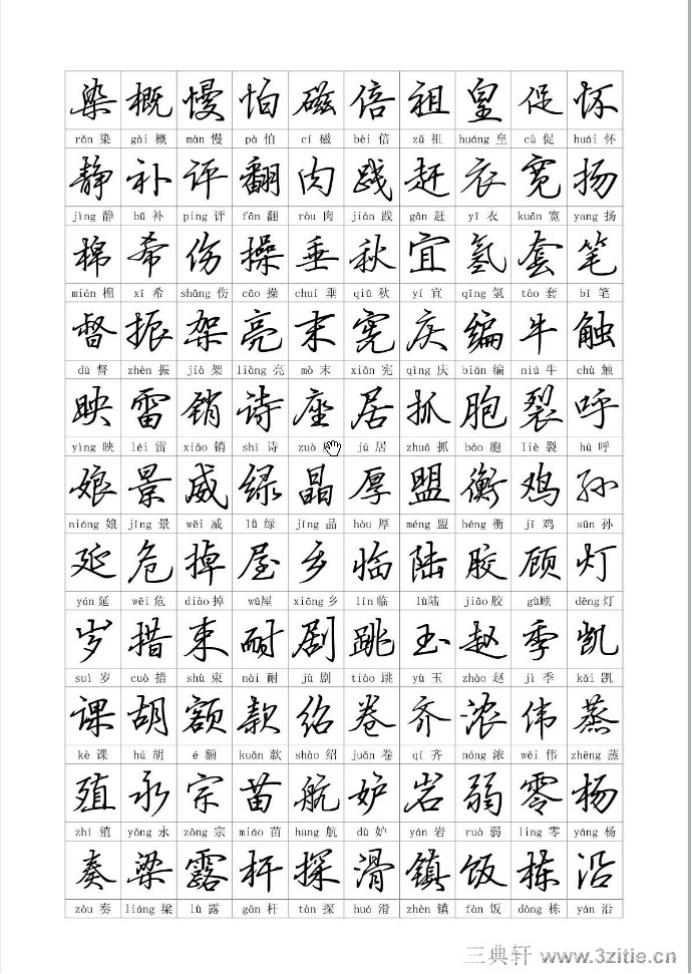 染 概 慢 怕 磁 倍 祖 皇 促 怀
rǎn 染 gài 概 màn 慢 pà 怕 cí 磁 bèi 倍 zǔ 祖 huáng 皇 cù 促 huái 怀
静 补 评 翻 肉 践 赶 衣 宽 扬
jìng 静 bǔ 补 píng 评 fān 翻 ròu 肉 jiàn 践 gǎn 赶 yī 衣 kuān 宽 yang 扬
棉 希 伤 操 垂 秋 宜 氢 套 笔
mián 棉 xī 希 shāng 伤 cāo 操 chuí 垂 qiū 秋 yí 宜 qīng 氢 tào 套 bǐ 笔
督 振 架 亮 末 宪 庆 编 牛 触
dū 督 zhèn 振 jià 架 liàng 亮 mò 末 xiàn 宪 qìng 庆 biān 编 niú 牛 chù 触
映 雷 销 诗 座 居 抓 胞 裂 呼
yìng 映 léi 雷 xiāo 销 shī 诗 zuò jū 居 zhuā 抓 bāo 胞 liè 裂 hū 呼
娘 景 威 绿 晶 厚 盟 衡 鸡 孙
niáng 娘 jǐng 景 wēi 威 lǜ 绿 jīng 晶 hòu 厚 méng 盟 héng 衡 jī 鸡 sūn 孙
延 危 掉 屋 乡 临 陆 胶 顾 灯
yán 延 wēi 危 diào 掉 wū屋 xiāng 乡 lín 临 lù陆 jiāo 胶 gù顾 dēng 灯
岁 措 束 耐 剧 跳 玉 赵 季 凯
suì 岁 cuò 措 shù 束 nài 耐 jù 剧 tiào 跳 yù 玉 zhào 赵 jì 季 kǎi 凯
课 胡 额 款 绍 卷 齐 浓 伟 蒸
kè 课 hú 胡 é 额 kuǎn 款 shào 绍 juǎn 卷 qí 齐 nóng 浓 wěi 伟 zhēng 蒸
殖 永 宗 苗 航 妒 岩 弱 零 杨
zhí 殖 yǒng 永 zōng 宗 miáo 苗 hang 航 dù 妒 yán 岩 ruò 弱 líng 零 yáng 杨
奏 梁 露 杆 探 滑 镇 饭 栋 沿
zòu 奏 liáng 梁 lù 露 gǎn 杆 tàn 探 huá 滑 zhèn 镇 fàn 饭 dòng 栋 yán 沿
三典轩 www.3zitie.cn